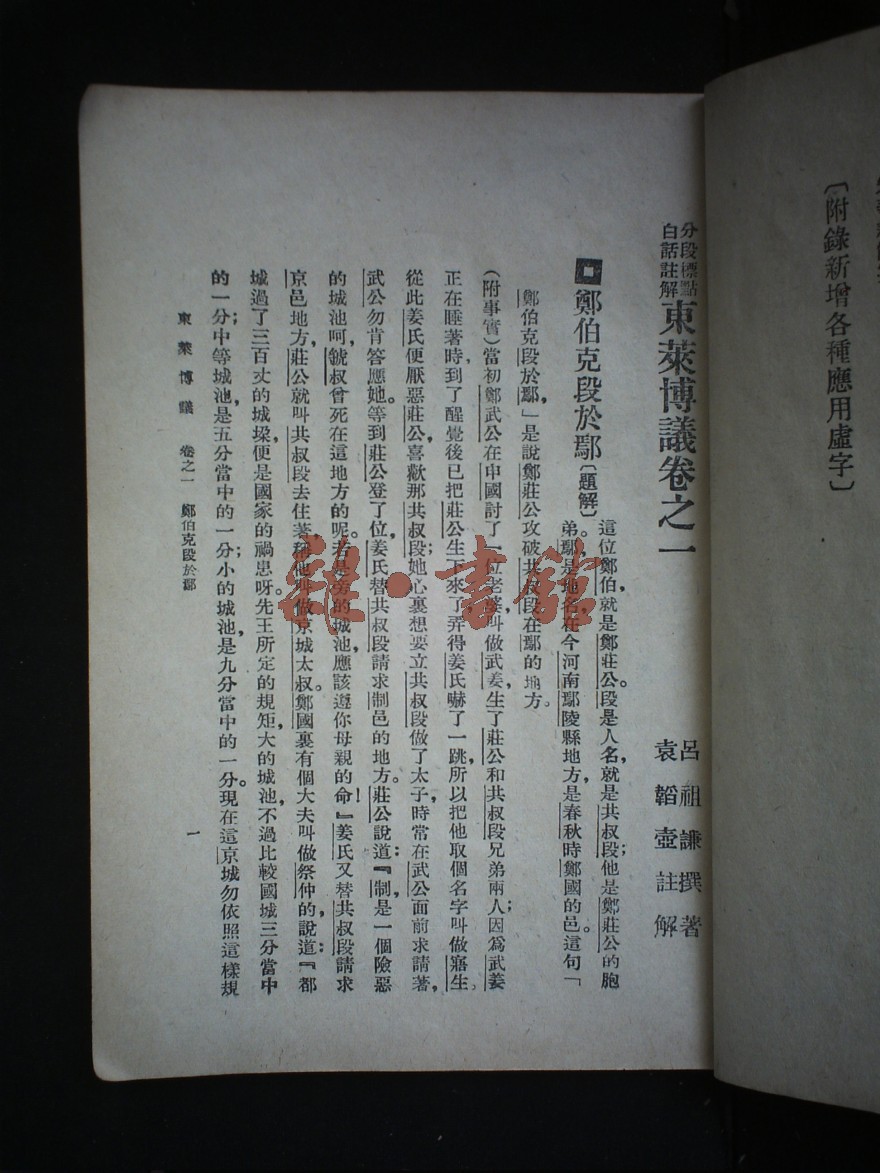 〔附錄新增各種應用虛字〕
分段標點
白話註解
東萊博議卷之一
呂祖謙撰著
袁韜壺註解
鄭伯克段於鄢〔題解〕
這位鄭伯,就是鄭莊公。段是人名,就是共叔段;他是鄭莊公的胞
弟。鄢是地名,在今河南鄢陵縣地方,是春秋時鄭國的邑。這句「
鄭伯克段於鄢,」是說鄭莊公攻破共叔段在鄢的地方。
(附事實)當初鄭武公在申國討了一位老婆,叫做武姜,生了莊公和共叔段兄弟兩人;因爲武姜
正在睡著時,到了醒覺後已把莊公生下來了,弄得姜氏嚇了一跳,所以把他取個名字叫做寤生。
從此姜氏便厭惡莊公,喜歡那共叔段;她心裏想要立共叔段做了太子,時常在武公面前求請著,
武公勿肯答應她。等到莊公登了位,姜氏替共叔段請求制邑的地方。莊公說道:『制,是一個險惡
的城池呵,虢叔曾死在這地方的呢。若是旁的城池,應該遵你母親的命!』姜氏又替共叔段請求
京邑地方,莊公就叫共叔段去住著,稱他叫做京城太叔。鄭國裏有個大夫叫做祭仲的,說道:『都
城過了三百丈的城垜,便是國家的禍患呀。先王所定的規矩,大的城池,不過比較國城三分當中
的一分;中等城池,是五分當中的一分;小的城池,是九分當中的一分。現在這京城勿依照這樣規
東萊博議 卷之一 鄭伯克段於鄢
一
雜·書館